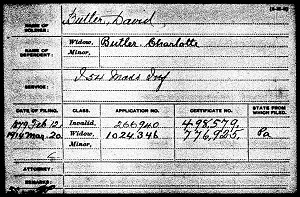 NAME OF SOLDIER: Butler, David
NAME OF DEPENDENT: Widow, Butler, Charlotte
Minor,
SERVICE: I 54 Mass Inf
DATE OF FILING. CLASS. APPLICATION NO. CERTIFICATE NO. STATE FROM WHICH FILED.
1879 Feb. 12 Invalid, 266940 498,579
1914 Mar. 20 Widow, 1024346 776,925 Pa
Minor,
ATTORNEY:
REMARKS: